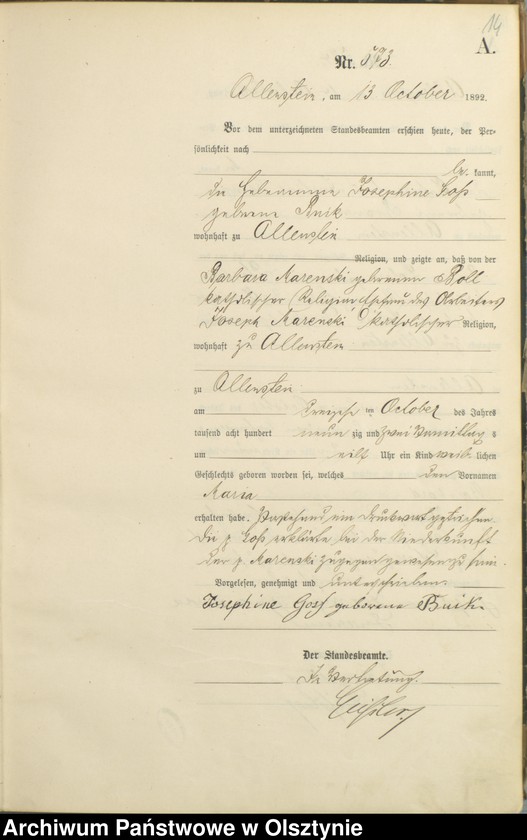 14
A.
Nr. 573.
Allenstein, am 13 October 1892.
Vor dem unterzeichneten Standesbeamten erschien heute, der Per-
sönlichkeit nach
be kannt,
die Hebeamme Josephine Goß
geborene
wohnhaft zu Allenstein
Religion, und zeigte an, daß von der
Barbara Marenski geborenen Boll
katholischer Religion Ehefrau des Arbeiters
Joseph Marenski katholischer Religion,
wohnhaft zu Allenstein
zu Allenstein
am ten October des Jahres
tausend acht hundert neun zig und zwei Vormittag s
um Uhr ein Kind weib lichen
Geschlechts geboren worden sei, welches den Vornamen
Maria
erhalten habe. Vorstehend ein Druckwort gestrichen.
Die p Goß erklärte bei der Niederkunft
der p Marenski zugegen gewesen zu sein.
Vorgelesen, genehmigt und unterschrieben.
Josephine Goss geborene
Der Standesbeamte.
In Vertretung.
Archiwum Państwowe w Olsztynie